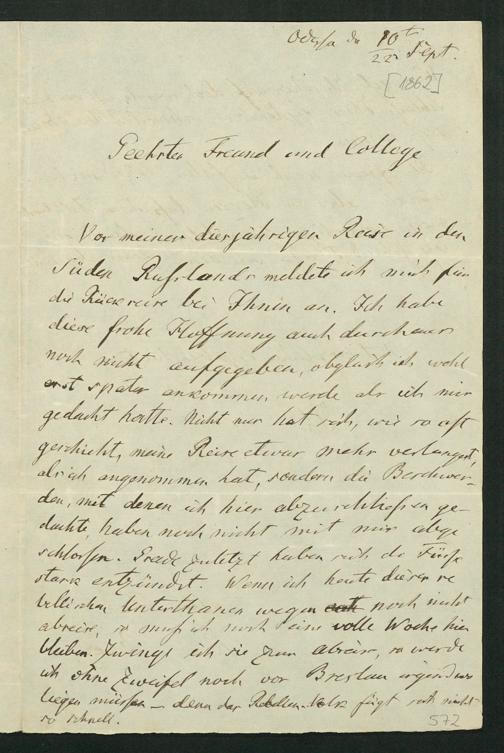 Odessa d 10/22 Sept.
[1862]
Geehrter Freund und College
Vor meiner dierjährigen Reise in den
Süden Rufslands meldete ich mich für
die Rückreise bei Ihnen an. Ich habe
diese frohe Hoffnung auch durchaus
noch nicht aufgegeben, obgleich ich wohl
erst später ankommen werde als ich mir
gedacht hatte. Nicht nur hat sich, wie so oft
geschieht, meine Reise etwas mehr verlängert,
als ich angenommen hat, sondern die Beschwer-
den, mit denen ich hier abzuschliefsen ge-
dachte, haben noch nicht mit mir abge
schlossen. Grade zuletzt haben sich die Füsse
stark entzündet. Wenn ich heute dieser re
bellischen Unterthanen wegen noch nicht
abreise, so mufs ich noch eine volle Woche hier
bleiben. Zwinge ich sie zum abreisen, so werde
ich ohne Zweifel noch vor Breslau irgendwo
liegen müssen – denn das Rebellen-Volk fügt sich nicht
so schnell.
572